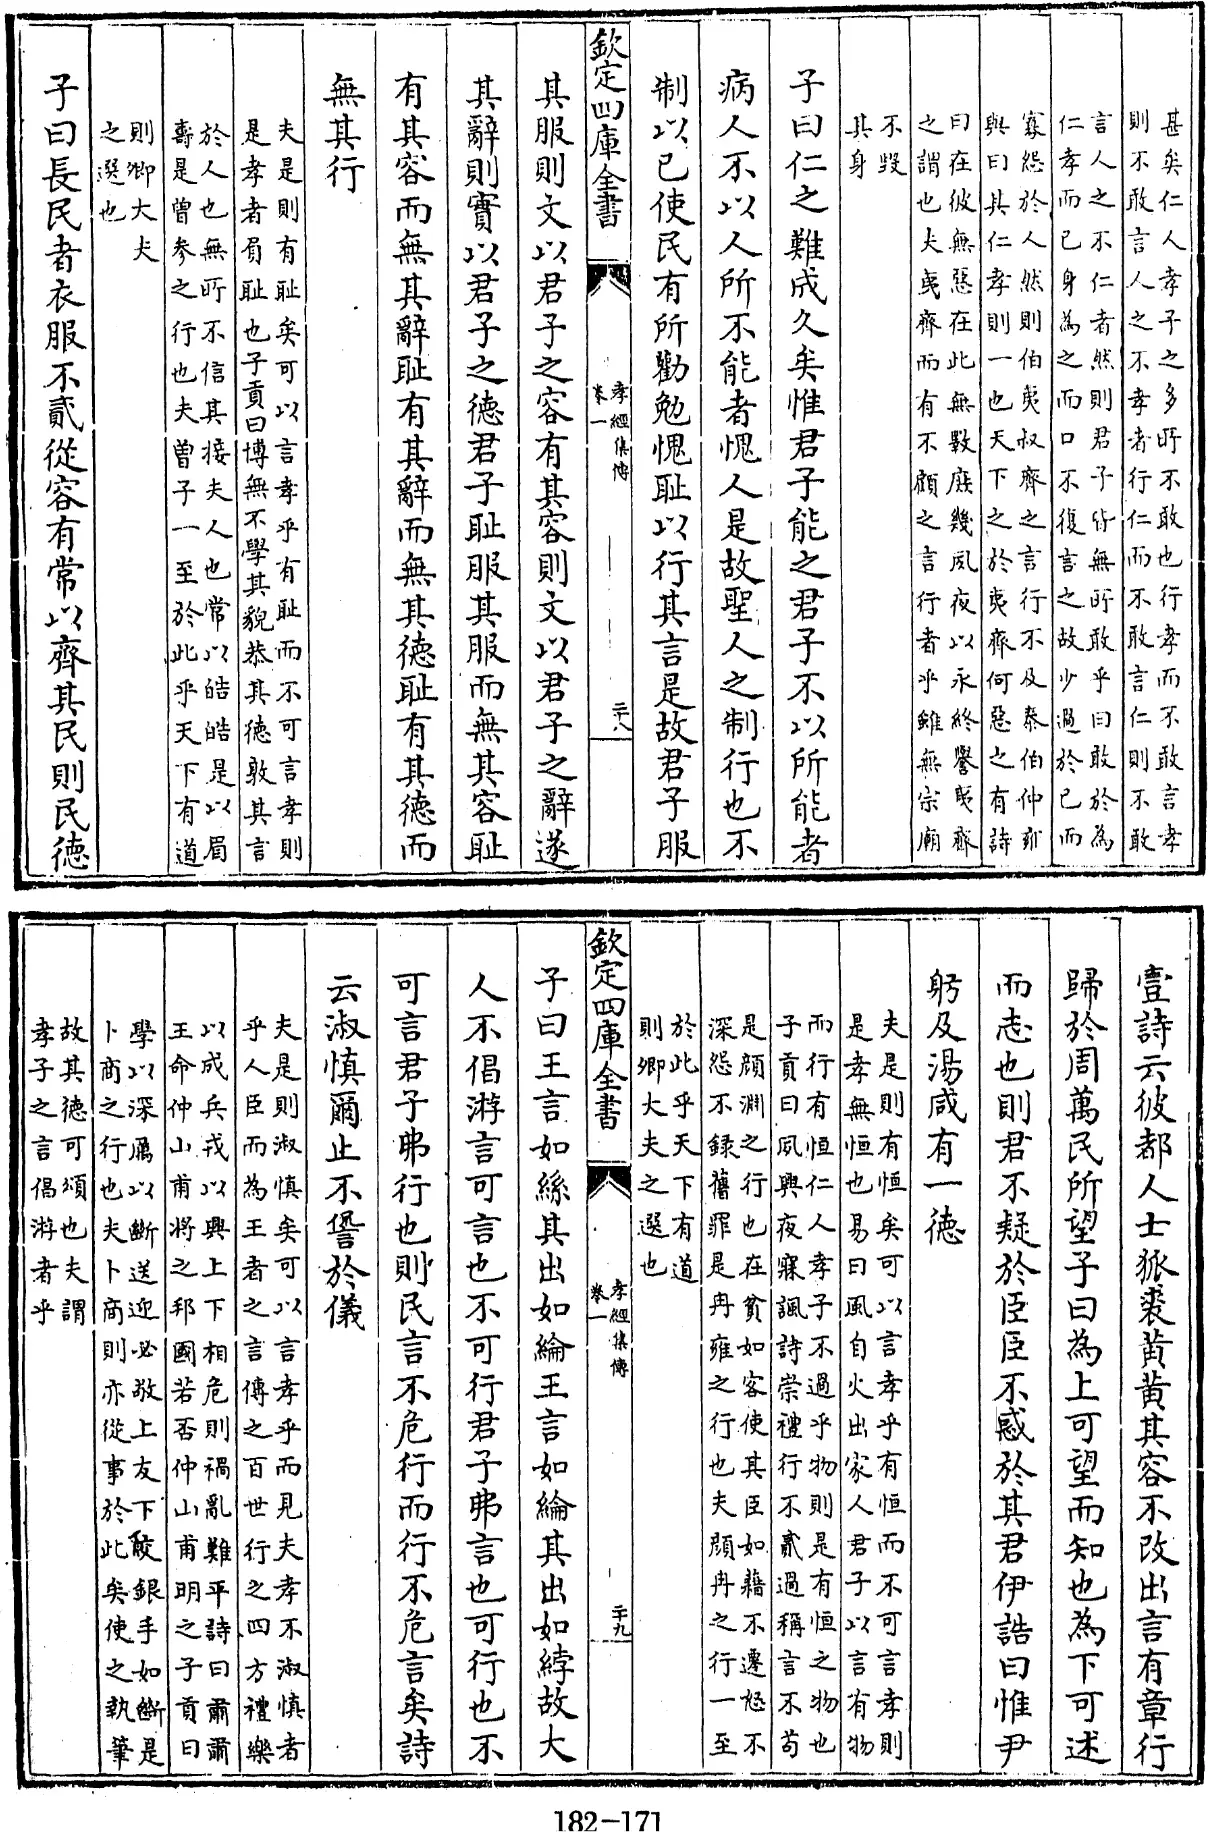 甚矣仁人孝子之多所不敢也行孝而不敢言孝
則不敢言人之不孝者行仁而不敢言仁則不敢
言人之不仁者然則君子皆無所敢乎曰敢於為
仁孝而已身為之而口不復言之故少過於己而
寡怨於人然則伯夷叔齊之言行不及泰伯仲雍
與曰其仁孝則一也天下之於夷齊何惡之有詩
曰在彼無惡在此無斁庶幾夙夜以永終譽夷齊
之謂也夫夷齊而有不顧之言行者乎雖無宗廟
不毀
其身
子曰仁之難成久矣惟君子能之君子不以所能者
病人不以人所不能者愧人是故聖人之制行也不
制以己使民有所勸勉愧耻以行其言是故君子服
欽定四庫全書
孝經集傳
卷一
二十八
其服則文以君子之容有其容則文以君子之辭遂
其辭則實以君子之德君子耻服其服而無其容耻
有其容而無其辭耻有其辭而無其德耻有其德而
無其行
夫是則有耻矣可以言孝乎有耻而不可言孝則
是孝者眉耻也子貢曰博無不學其貌恭其德敦其言
於人也無所不信其接夫人也常以皓皓是以眉
壽是曾參之行也夫曾子一至於此乎天下有道
則卿大夫
之選也
子曰長民者衣服不貳從容有常以齊其民則民德
壹詩云彼都人士狐裘黃黃其容不改出言有章行
歸於周萬民所望子曰為上可望而知也為下可述
而志也則君不疑於臣臣不惑於其君伊誥曰惟尹
躬及湯咸有一德
夫是則有恒矣可以言孝乎有恒而不可言孝則
是孝無恒也易曰風自火出家人君子以言有物
而行有恒仁人孝子不過乎物則是有恒之物也
子貢曰夙興夜寐諷詩崇禮行不貳過稱言不苟
是顏淵之行也在貧如客使其臣如藉不遷怒不
深怨不錄舊罪是冉雍之行也夫顏冉之行一至
於此乎天下有道
則卿大夫之選也
欽定四庫全書
孝經集傳
卷一
二十九
子曰王言如絲其出如綸王言如綸其出如綍故大
人不倡游言可言也不可行君子弗言也可行也不
可言君子弗行也則民言不危行而行不危言矣詩
云淑慎爾止不諐於儀
夫是則淑慎矣可以言孝乎而見夫孝不淑慎者
乎人臣而為王者之言傳之百世行之四方禮樂
以成兵戎以興上下相危則禍亂難平詩曰肅肅
王命仲山甫將之邦國若否仲山甫明之子貢曰
學以深厲以斷送迎必敬上友下交銀手如斷是
卜商之行也夫卜商則亦從事於此矣使之執筆
故其德可頌也夫謂
孝子之言倡游者乎
182-171